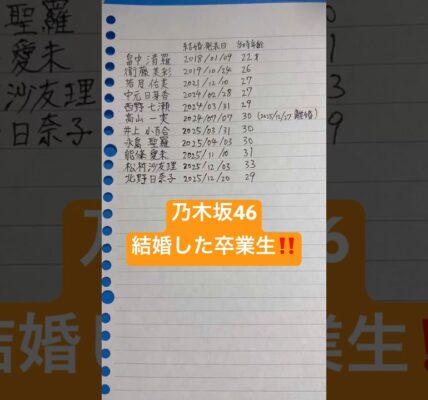 結婚発表日 当時年齢
畠中清羅 2018/01/09 22才
衛藤美彩 2019/10/24 26
若月佑美 2021/12/10 27
中元日芽香 2024/02/28 27
西野七瀬 2024/03/31 29
高山一実 2024/07/07 30 (2025/12/27 離婚)
井上小百合 2025/03/31 30
永島聖羅 2025/04/03 30
能條愛未 2025/11/10 31
松村沙友理 2025/12/03 33
北野日奈子 2025/12/20 29
乃木坂46
結婚した卒業生‼️
聖羅
愛未
沙友理
日奈子
結婚
業生‼️